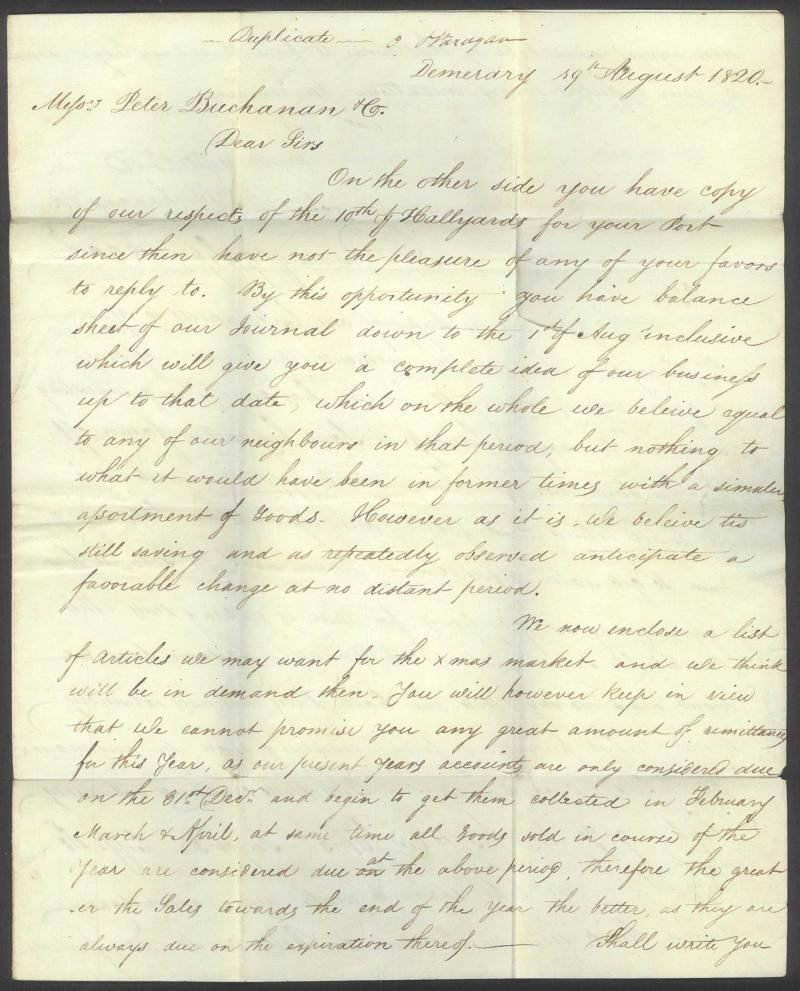 — Duplicate —
Demerary 19th August 1820.—
Messrs Peter Buchanan & Co.
Dear Sirs
On the other side you have copy
of our respects of the 10th Hallyards for your Port
since then have not the pleasure of any of your favors
to reply to. By this opportunity you have balance
sheet of our Journal down to the 1st of Augt inclusive
which will give you a complete idea of our business
up to that date, which on the whole we beleive equal
to any of our neighbours in that period, but nothing to
what it would have been in former times with a similer
assortment of Goods. However as it is, we beleive tis
still saving and as repeatedly observed anticipate a
favorable change at no distant period.
We now enclose a list
of articles we may want for the Xmas market and we think
will be in demand then. You will however keep in view
that we cannot promise you any great amount of remittances
for this Year, as our present years accounts are only considered due
on the 31st Decr and begin to get them collected in February
March & April, at same time all Goods sold in course of the
Year are considered due on at the above period, therefore the great
er the Sales towards the end of the year the better, as they are
always due on the expiration thereof.— Shall write you